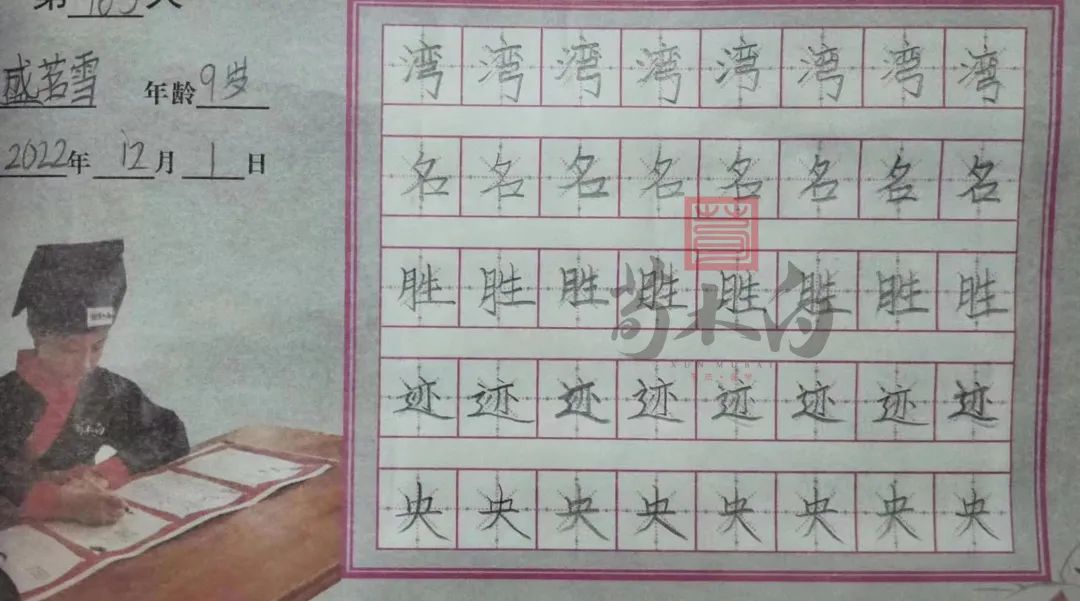 第103天
盛若雪 年龄9岁
2022年12月1日
湾湾湾湾湾湾湾湾
名名名名名名名名
胜胜胜胜胜胜胜胜
迹迹迹迹迹迹迹迹
央央央央央央央央
荀木白
XUN MUBAI